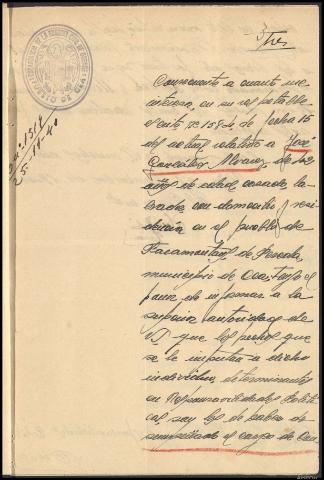 Tres
Nº. 1514
25-11-40
Consecuente a cuanto me
interesa, en su respetable
escrito nº 1584, de fecha 15
del actual relativo a José
González Alvarez, de 42
años de edad, casado, la-
brador con domicilio y resi-
dencia en el pueblo de
de
municipio de
de informar a la
superior autoridad de
V que los hechos que
se le imputan a dicho
individuo, determinantes
en Responsavilidades Políti-
cas, son los de haber de-
sempeñado el cargo de Con-